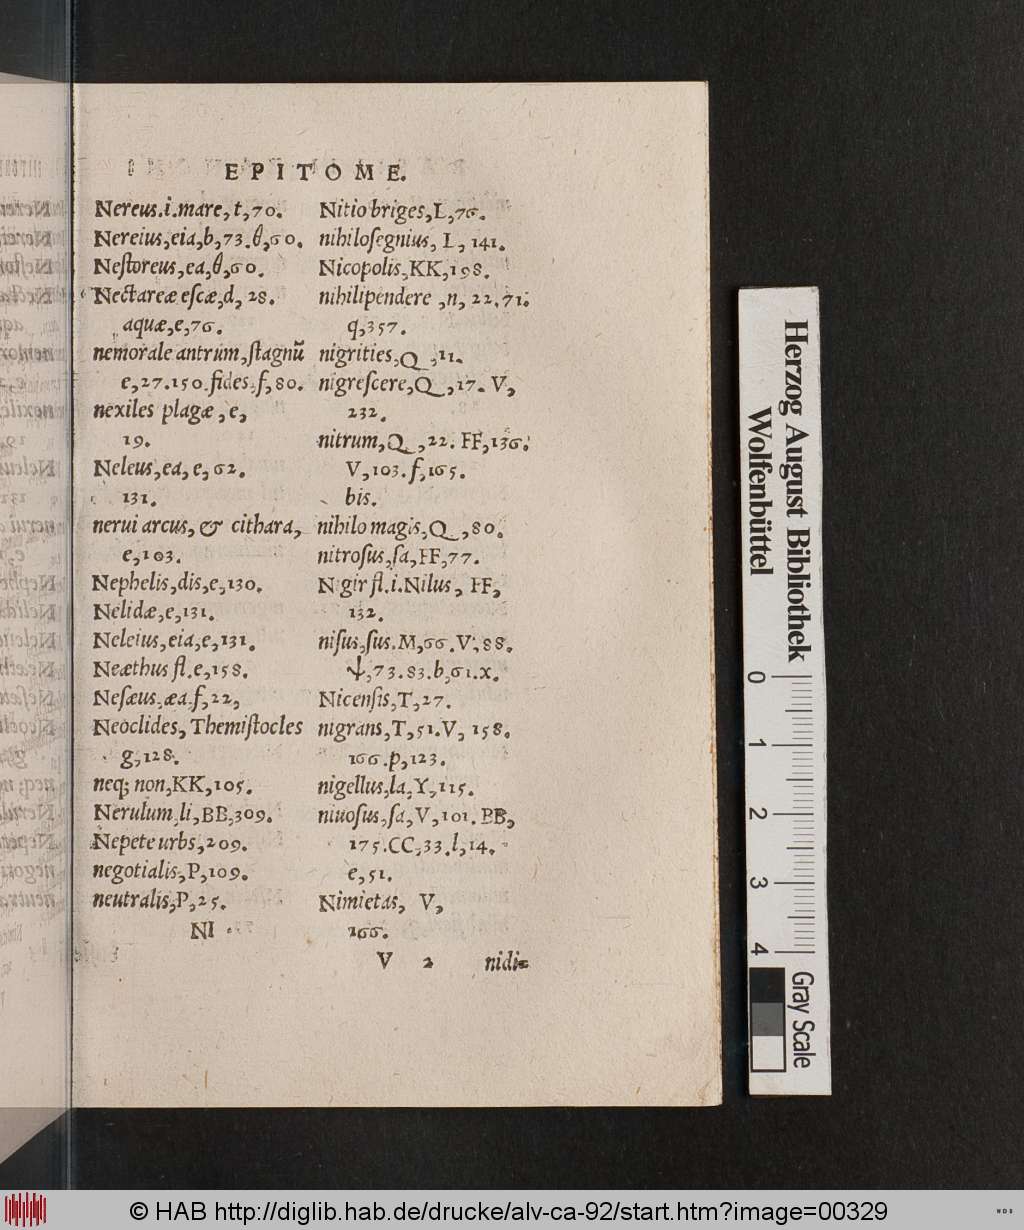 EPITOME.
Nereus.i.mare, t, 70.
Nereius, eia, b, 73. θ, 60.
Neſtoreus, ea, θ, 60.
Nectareæ eſcæ, d, 28.
aquæ, e, 76.
nemorale antrum, ſtagnũ
e, 27. 150. fides. f, 80.
nexiles plagæ, e,
19.
Neleus, ea, e, 62.
131.
nerui arcus, & cithara,
e, 103.
Nephelis, dis, e, 130.
Nelidæ, e, 131.
Neleius, eia, e, 131.
Neæthus fl. e, 158.
Neſæus, æa. f, 22,
Neoclides, Themiſtocles
g, 128.
neq; non, KK, 105.
Nerulum, li, BB, 309.
Nepete urbs, 209.
negotialis, P, 109.
neutralis, P, 25.
NI
Nitiobriges, L, 76.
nihiloſegnius, L, 141.
Nicopolis, KK, 198.
nihilipendere, n, 22. 71.
q, 357.
nigrities, Q, 11.
nigreſcere, Q, 17. V,
232.
nitrum, Q, 22. FF, 136.
V, 103. f, 165.
bis.
nihilo magis, Q, 80.
nitroſus, ſa, FF, 77.
Nigir fl. i. Nilus, FF,
132.
niſus, ſus. M, 66. V, 88.
ψ, 73. 83. b, 61. x.
Nicenſis, T, 27.
nigrans, T, 51. V, 158.
166. p, 123.
nigellus, la, Y, 115.
niuoſus, ſa, V, 101. BB,
175. CC, 33. l, 14.
e, 51.
Nimietas, V,
166.
V 2 nidi-
Herzog August Bibliothek
Wolfenbüttel
0 1 2 3 4
Gray Scale
© HAB http://diglib.hab.de/drucke/alv-ca-92/start.htm?image=00329